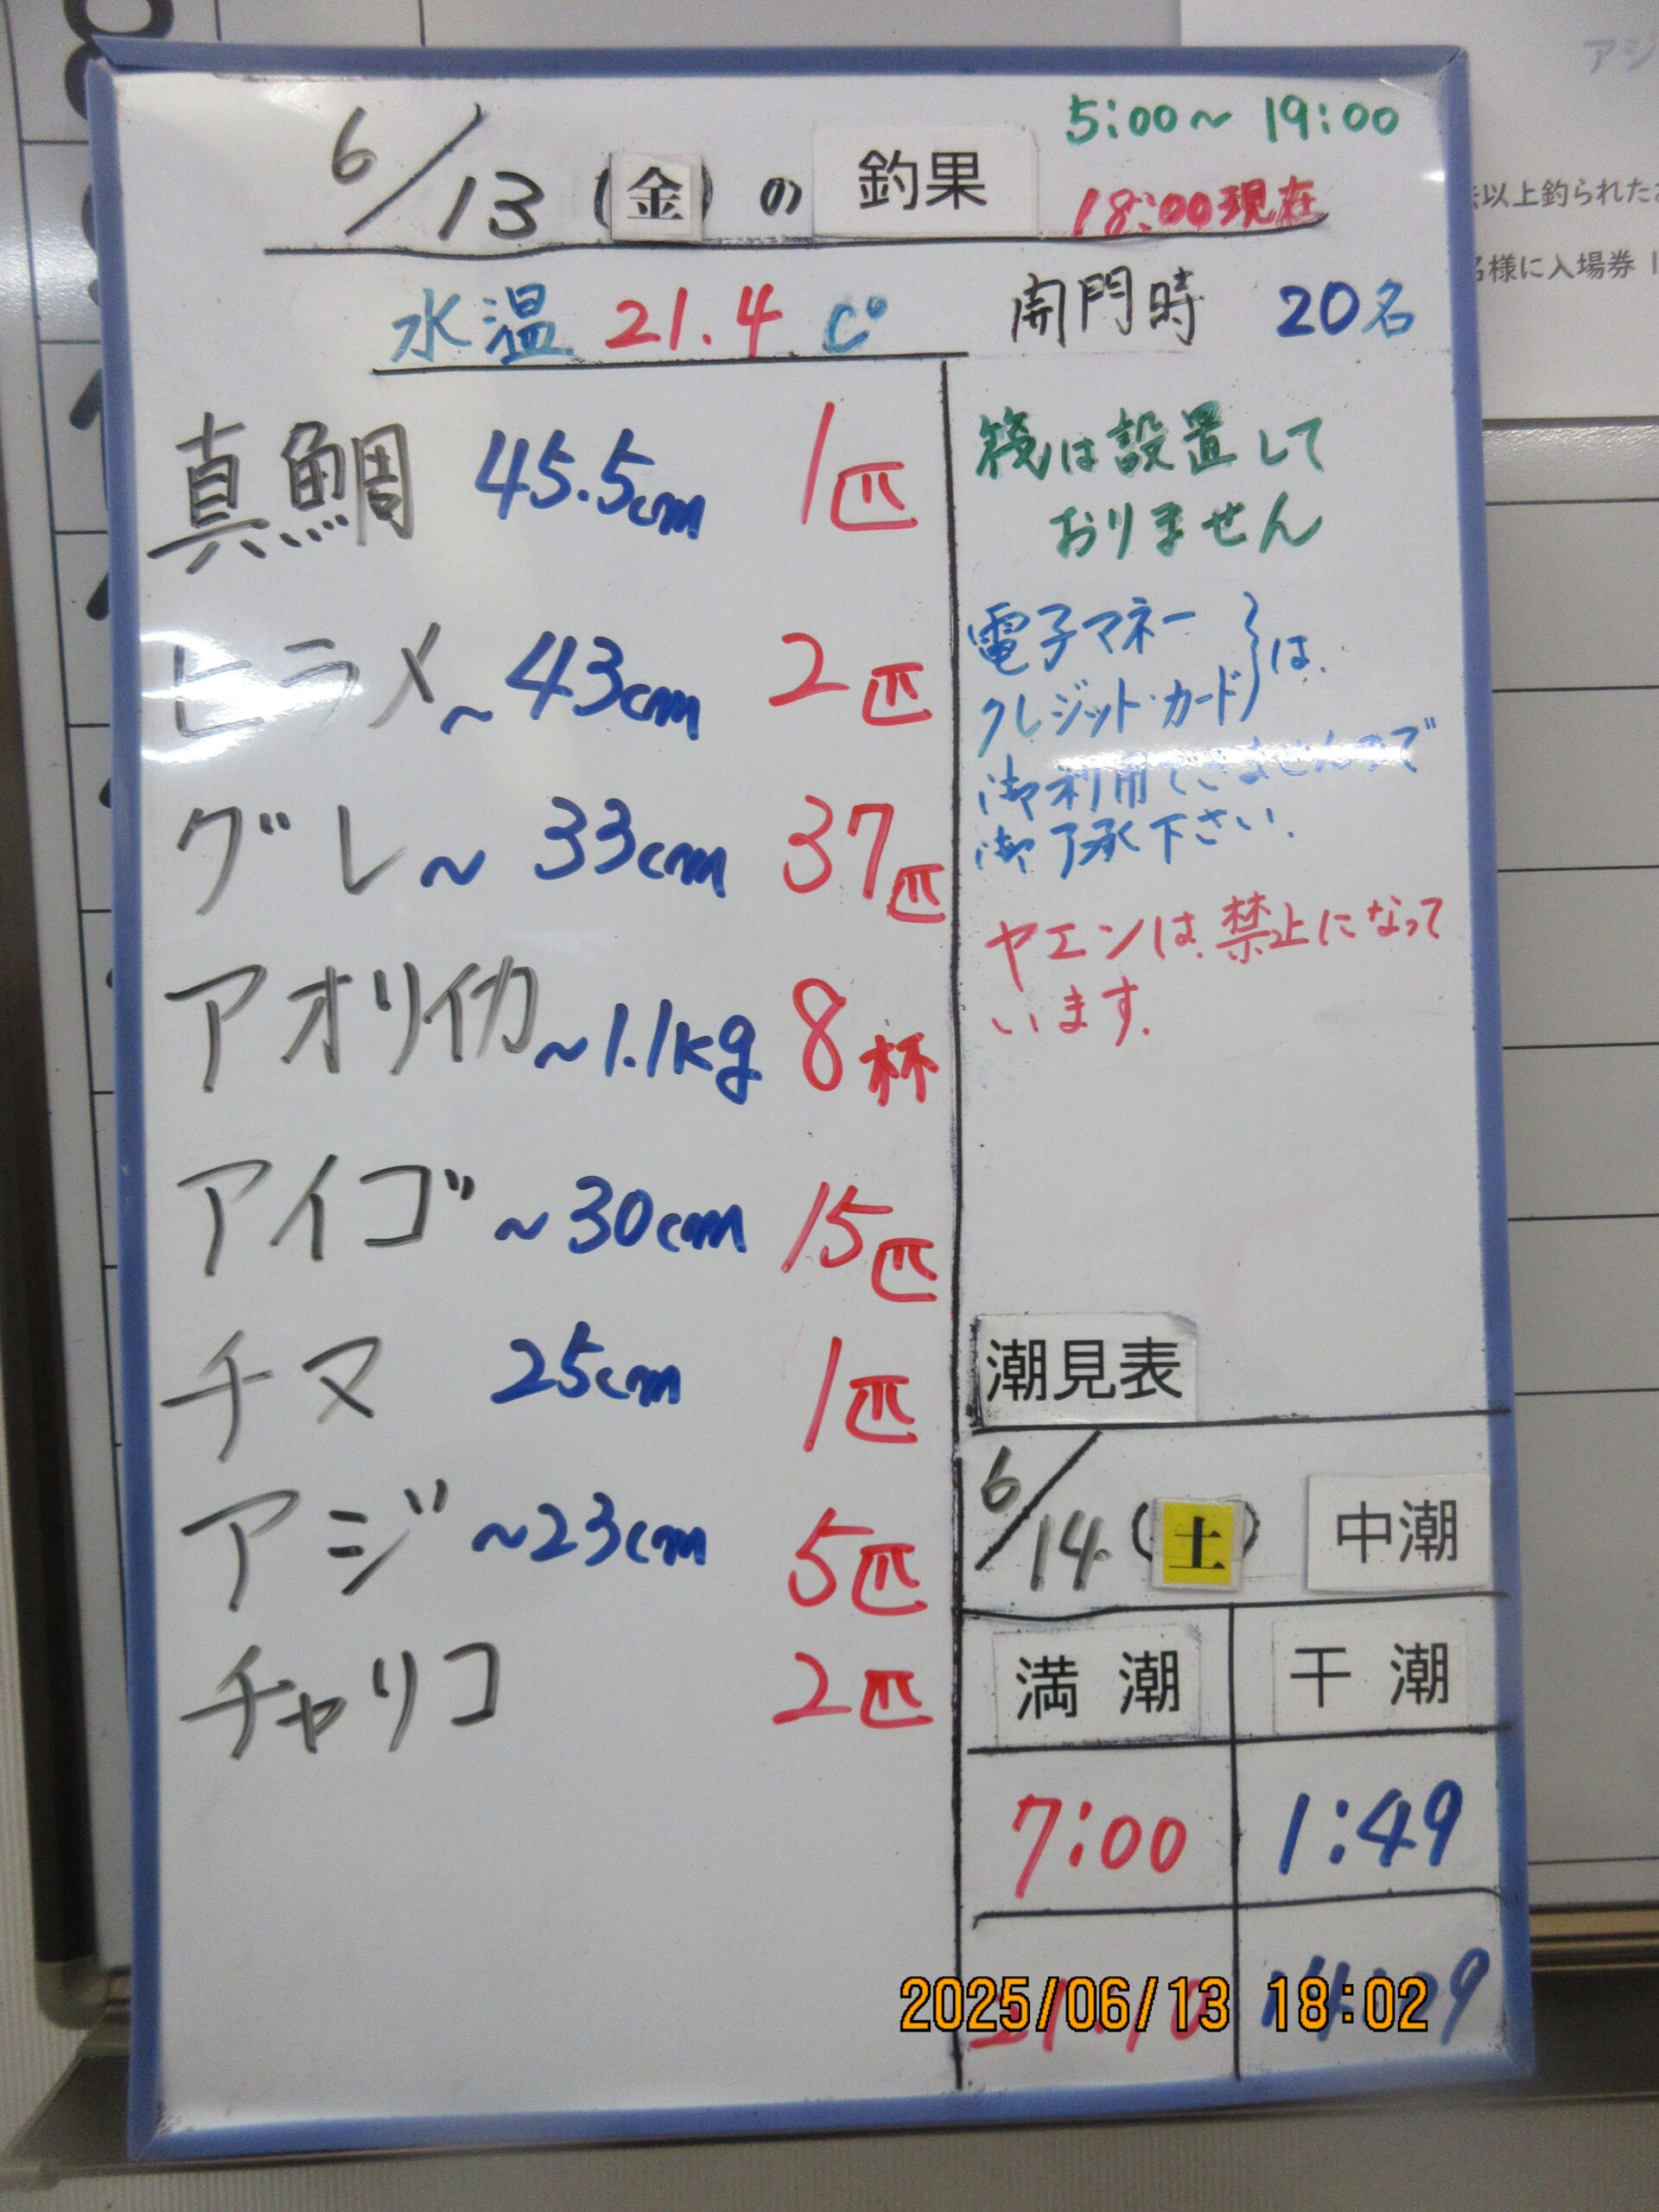 6/13 (金) の 釣果
5:00~19:00
18:00現在
水温 21.4 C°
開門時 20名
真鯛 45.5cm 1匹
ヒラメ ~43cm 2匹
グレ ~33cm 37匹
アオリイカ ~1.1kg 8杯
アイゴ ~30cm 15匹
チヌ 25cm 1匹
アジ ~23cm 5匹
チャリコ 2匹
筏は設置して
おりません
電子マネー
クレジット・カード}は、
御利用できませんので
御了承下さい.
ヤエンは、禁止になって
います.
潮見表
6/14 (土) 中潮
満潮 干潮
7:00 1:49
2025/06/13 18:02
アジ
以上釣られたお
名様に入場券